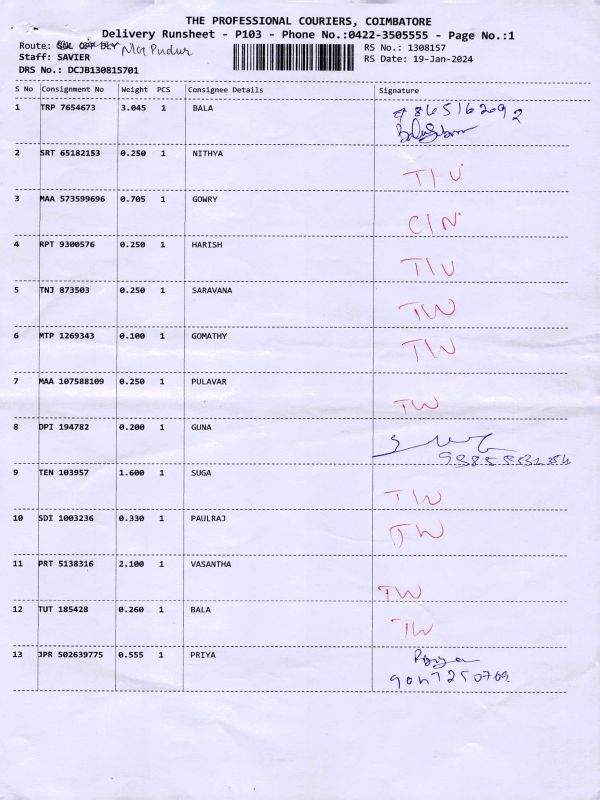 THE PROFESSIONAL COURIERS, COIMBATORE
Delivery Runsheet - P103 - Phone No.:0422-3505555 - Page No.:1
Route: Pudur
RS No.: 1308157
Staff: SAVIER
RS Date: 19-Jan-2024
DRS No.: DCJB130815701
S No Consignment No Weight PCS Consignee Details Signature
1 TRP 7654673 3.045 1 BALA
2 SRT 65182153 0.250 1 NITHYA
3 MAA 573599696 0.705 1 GOWRY
4 RPT 9300576 0.250 1 HARISH
5 TNJ 873503 0.250 1 SARAVANA
TW
6 MTP 1269343 0.100 1 GOMATHY
TW
7 MAA 107588109 0.250 1 PULAVAR
TW
8 DPI 194782 0.200 1 GUNA
9 TEN 103957 1.600 1 SUGA
TW
10 SDI 1003236 0.330 1 PAULRAJ
TW
11 PRT 5138316 2.100 1 VASANTHA
TW
12 TUT 185428 0.260 1 BALA
TW
13 JPR 502639775 0.555 1 PRIYA
Priya